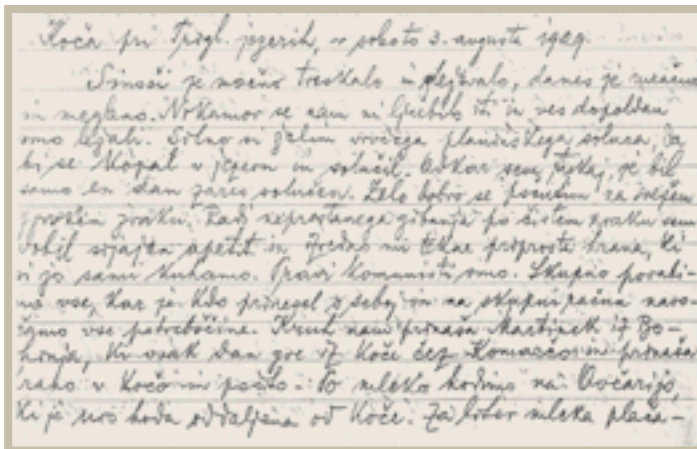 Koča pri Trigl. jezerih, v soboto 3. avgusta 1929
Sinoči je močno treskalo in deževalo, danes je
in megleno. Nikamor se nam ni ljubilo iti in ves dopoldan
smo ležali. Silno si želim vročega planinskega solnca, da
bi se kopal v jezeru in solnčil. Odkar sem tukaj, je bil
samo en dan zares solnčen. Zelo dobro se počutim na svežem
zraku. Radi neprestanega gibanja po čistem zraku sem
dobil sijajen apetit in tekne priprosta hrana, ki
si jo sami kuhamo. Pravi komunisti smo. Skupno porabi-
mo vse, kar je kdo prinesel s seboj in na skupni račun naro
čamo vse potrebščine. Kruh nam prinaša Martinek iz Bo-
hinja, ki vsak dan gre iz Koče čez Komarčo in prinaša
hrano v Kočo in pošto. Po mleko hodimo na Ovčarijo,
ki je uro hoda oddaljena od Koče. Za liter mleka plača-